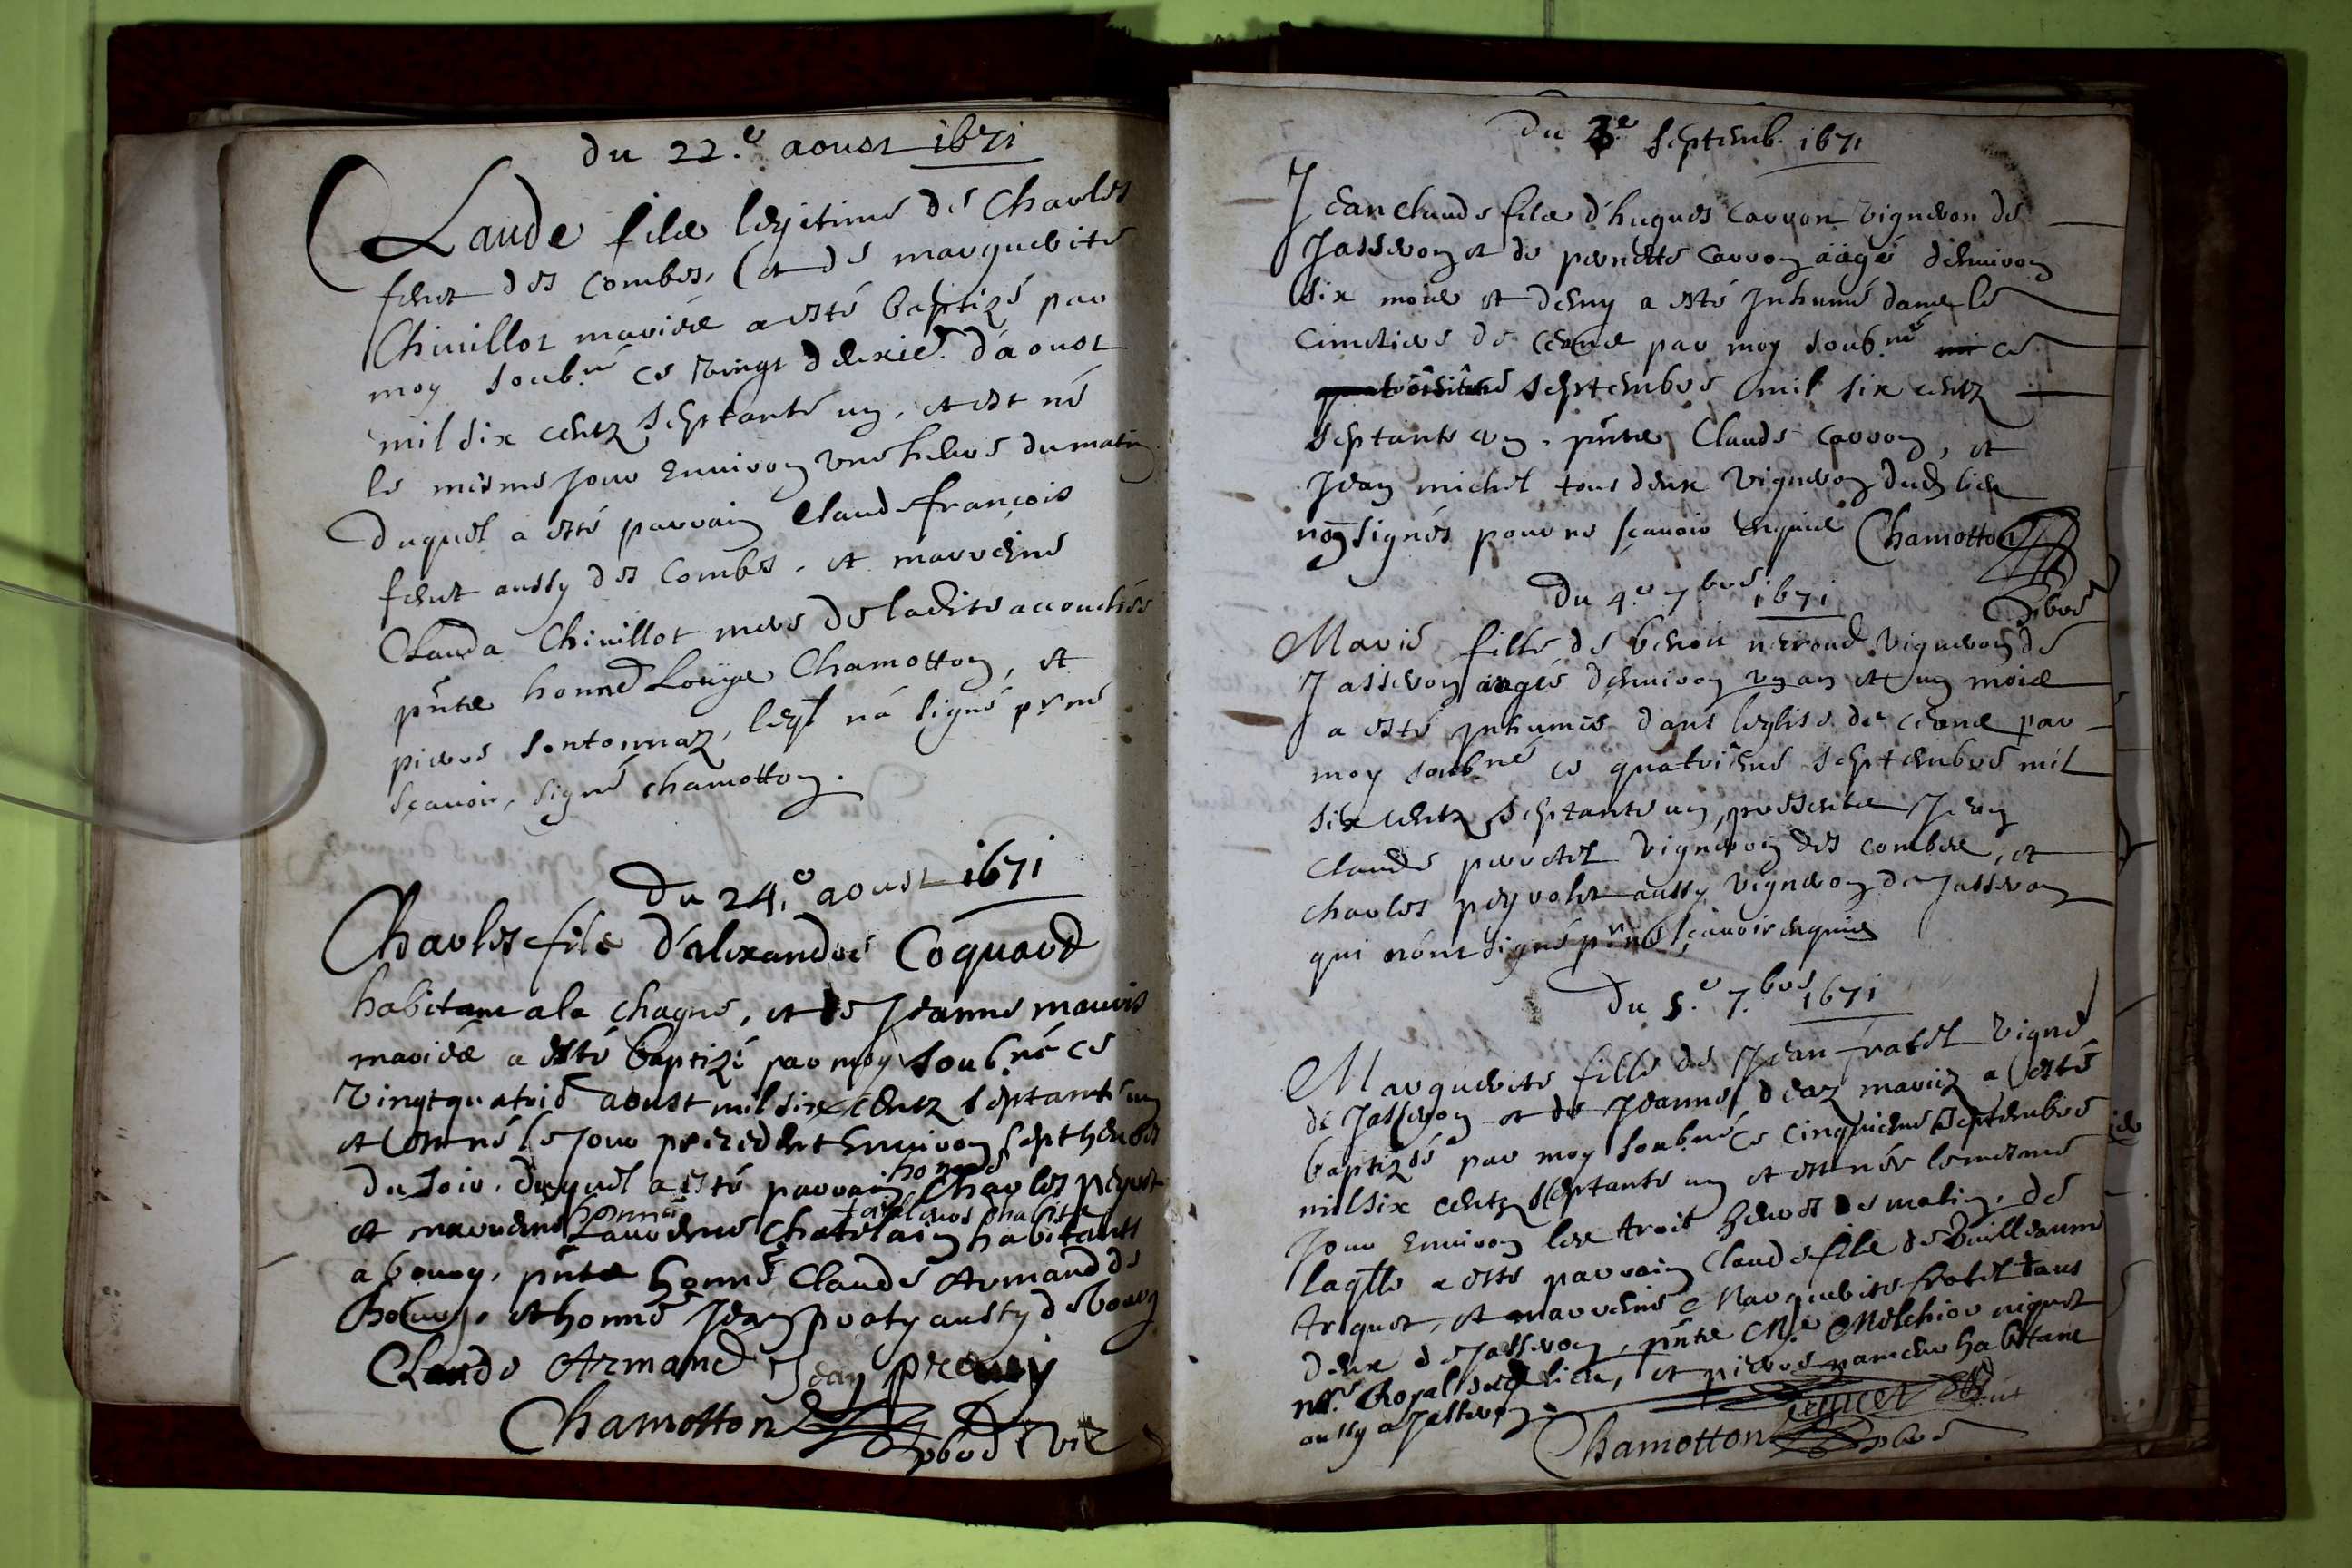 Du 22.e aoust 1671
Claude filz legitime de Charles
feut des Combes, et de marguerite
Chivillot mariéz a esté baptizé par
moy soub.né ce vingt deuxie. d'aoust
mil six centz septante un, et est né
le mesme jour environ une heure du matin
duquel a esté parrain Claude françois
feut aussy des Combes, et marreine
Clauda Chivillot mere de ladite accouchée
pñtz honne Louys Chamotton, et
pierre sontonnaz, leql n'a signé pr ne
sçavoir, signé chamotton.
Du 24.e aoust 1671
Charles filz d'alexandre Coquard
habitant a la Chagne, et de Jeanne mauvis
mariéz a esté baptizé par moy soub.né ce
vingt quatrie aoust mil six centz septante un
et est né le jour precedent environ sept heures
du soir, duquel a esté parrain honne Charles
et marreine honne Laurence Chatelain habitants
a bourg, pñtz honne Claude Armand de
Bourg, et honne Jean aussy de Bourg
Claude Armand Jean
Chamotton pbre vic
Du 3e septemb. 1671
Jean claude filz d'hugues Carron vigneron de
Jasseron et de pernette Carron aagé d'environ
six mois et demy a esté Inhumé dans le
cimetiere de ceans par moy soub.né ce
troisieme septembre mil six centz
septante un, pñtz Claude Carron, et
Jean michel tous deux vigneron dud lieu
non signés pour ne sçavoir enquis Chamotton
pbre
Du 4.e 7.bre 1671
Marie fille de benoit neroud vigneron de
Jasseron aagée d'environ un an et un mois
a esté inhumée dans leglise de ceans par
moy soub.né ce quatrieme septembre mil
six centz septante un, presentz Jean
Claude perretel vigneron des combes, et
charles peyrolet aussy vigneron de Jasseron
qui n'ont signé pr ne sçavoir enquis
Du 5.e 7.bre 1671
Marguerite fille de Jean fratel vigne
de Jasseron et de Jeanne deaz mariéz a esté
baptizée par moy soub.né ce cinquieme septembre
mil six centz septante un et est née le mesme
jour environ les trois heures de matin, de
laqlle a esté parrain Claude filz de Guilleaume
triquet, et marreine Marguerite fratel tous
deux de Jasseron, pñtz Me Melchior niquet
nre Royal dud lieu, et pierre habitant
aussy a Jasseron.
Chamotton pbre